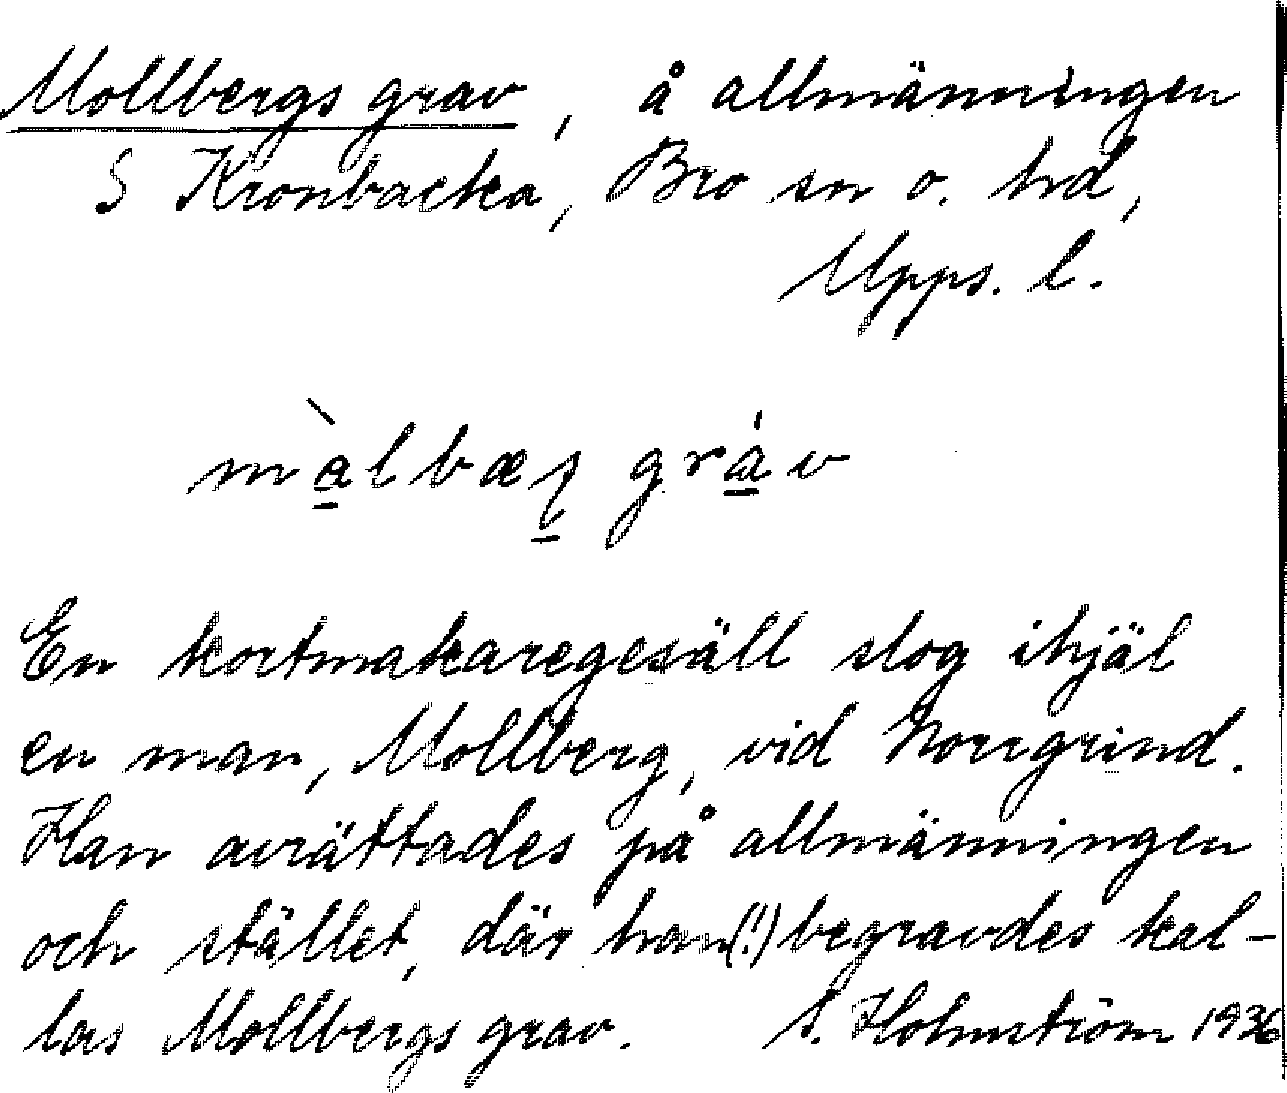 Mollbergs grav, å allmänningen
S Kronbacka, Bro sn o. hd,
Upps. l.
gráv
En kortmakaregesäll slog ihjäl
en man, Mollberg, vid Norrgrind.
Han avrättades på allmänningen
och stället, där han(!) begravdes kal-
las Mollbergs grav. S. Holmström 1936